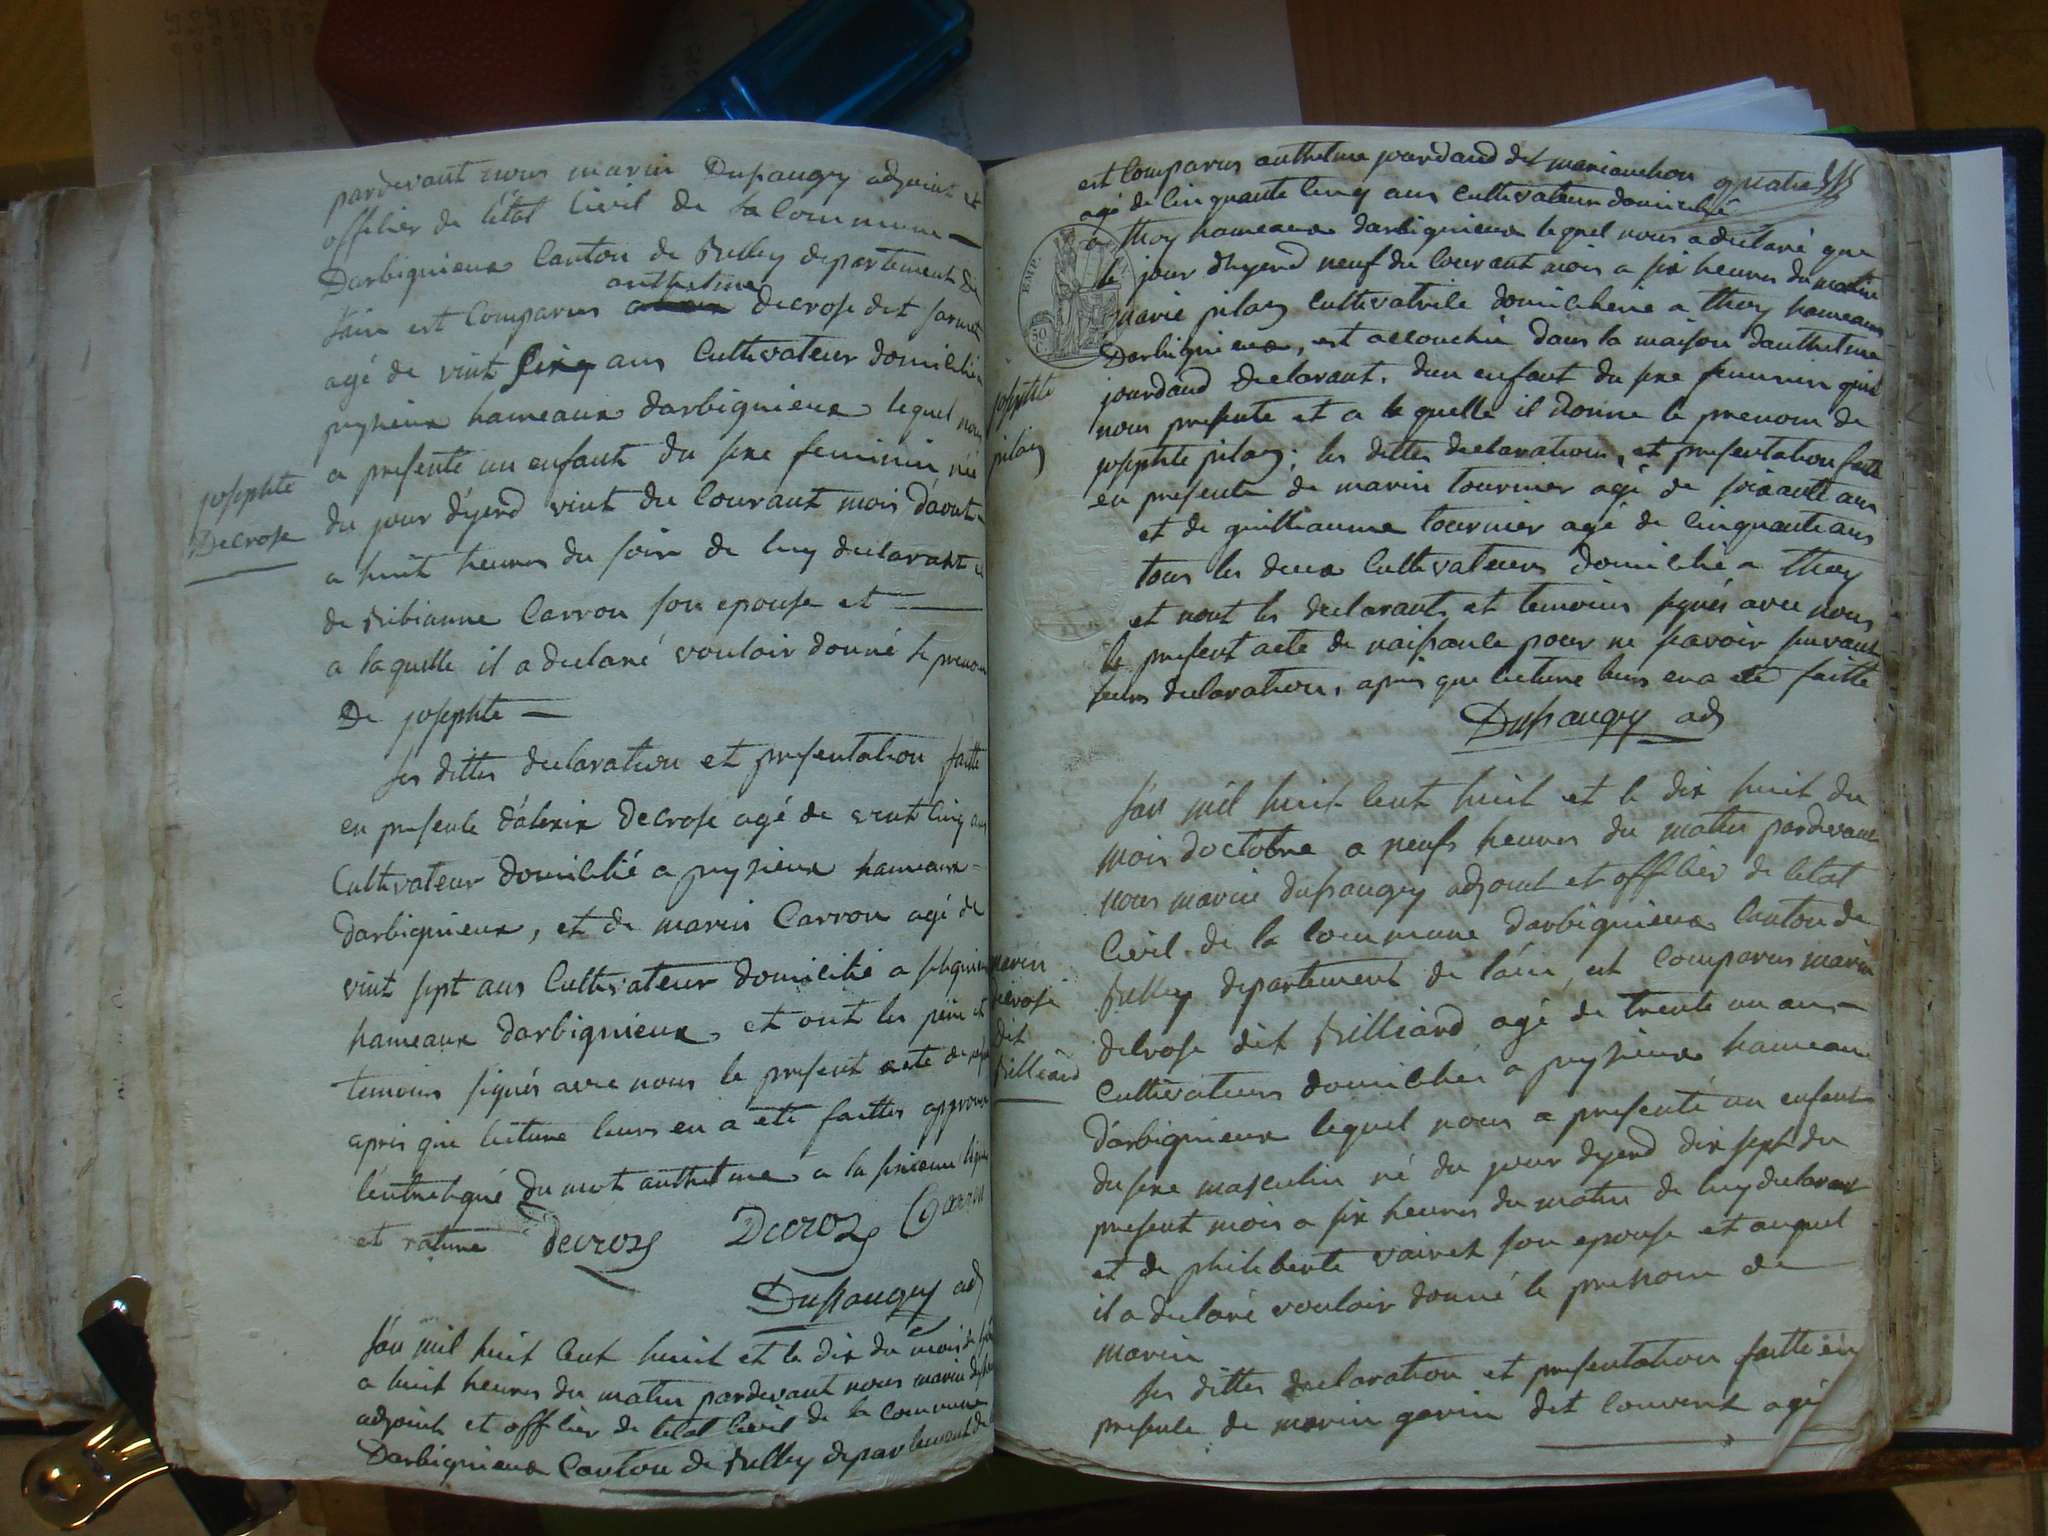 pardevant nous marin Dupaugey adjoint et
offilier de létat Civil de la Commune
Darbignieux Canton de Belley departement de
anthelme
lain est Comparus decrose dit
agé de vint sinq ans Cultivateur domicilié
peyzieux hameaux darbignieux lequel nous
a presenté un enfant du sexe feminin née
du jour d'yerd vint du Courant mois d'aout
josephte
Decrose
a huit heures du soir de luy declarant et
de Bibianne Carron son epouse et
a laquelle il a declaré vouloir donné le prenom
De josephte
les dittes declaration et presentation faitte
en presente d'alexix decrose agé de vint cinq ans
Cultivateur domicilié a peyzieux hameaux
darbignieux, et de marin Carron agé de
vint sept ans Cultivateur domicilié a
hameaux darbignieux, et ont les pere et
temoins signés avec nous le present acte de
apres que lecture leurs en a eté faittes approuvé
lentreligné du mot anthelme a la ligne
et raturé Decroze Decroze Carron
Dupaugey adj
lan mil huit Cent huit et le dix du mois de
a huit heures du matin pardevant nous marin
adjoint et offilier de letat Civil de la Commune
Darbignieux Canton de Belley departement de
quatre
est Comparus anthelme jourdand dit marianchon
agé de Cinquante Cinq ans Cultivateur domicilié
a thoy hameaux darbignieux lequel nous a declaré que
le jour dhyerd neuf du Courant mois a six heures du matin
marie pilaz Cultivatrile domiciliene a thoy hameaux
Darbignieux, est accouchée dans la maison danthelme
jourdand declarant. dun enfant du sexe feminin quil
nous presente et a laquelle il donne le prenom de
josephte
pilaz
josephte pilaz; les dittes declaration, et presentation faitte
en presente de marin tournier agé de soixante ans
et de guilliaume tournier agé de Cinquante ans
tous les deux Cultivateurs domicilié a thoy
et nont les declarants et temoins signés avec nous
le present acte de naissance pour ne savoir suivant
leurs declaration, apres que lecture leurs en a eté faitte
Dupaugey adj
EMP.
50
lan mil huit Cent huit et le dix huit du
mois doctobre a neufs heures du matin pardevant
nous marin dupaugey adjoint et offilier de letat
Civil de la Commune darbignieux Canton de
Belley departement de lain, est Comparus marin
marin
decrose
dit
Billiard
decrose dit Billiard agé de trente un ans
Cultivateurs domiciliés a peyzieux hameau
d'arbignieux lequel nous a presenté un enfent
du sexe masculin né du jour dyerd dix sept du
present mois a six heures du matin de luy declarant
et de philiberte vairet son epouse et auquel
il a declaré vouloir donné le prenom de
marin
les dittes declaration et presentation faitte en
presente de marin gavin dit Couvert agé